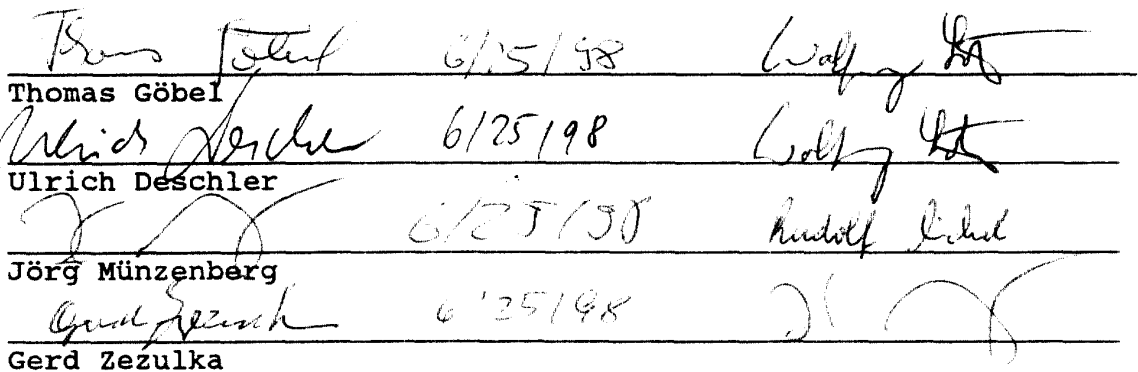 Thomas Göbel 6/25/98 Wolfgang
Thomas Göbel
Ulrich Deschler 6/25/98 Wolfgang
Ulrich Deschler
6/25/98 Rudolf
Jörg Münzenberg
Gerd Zezulka 6/25/98
Gerd Zezulka